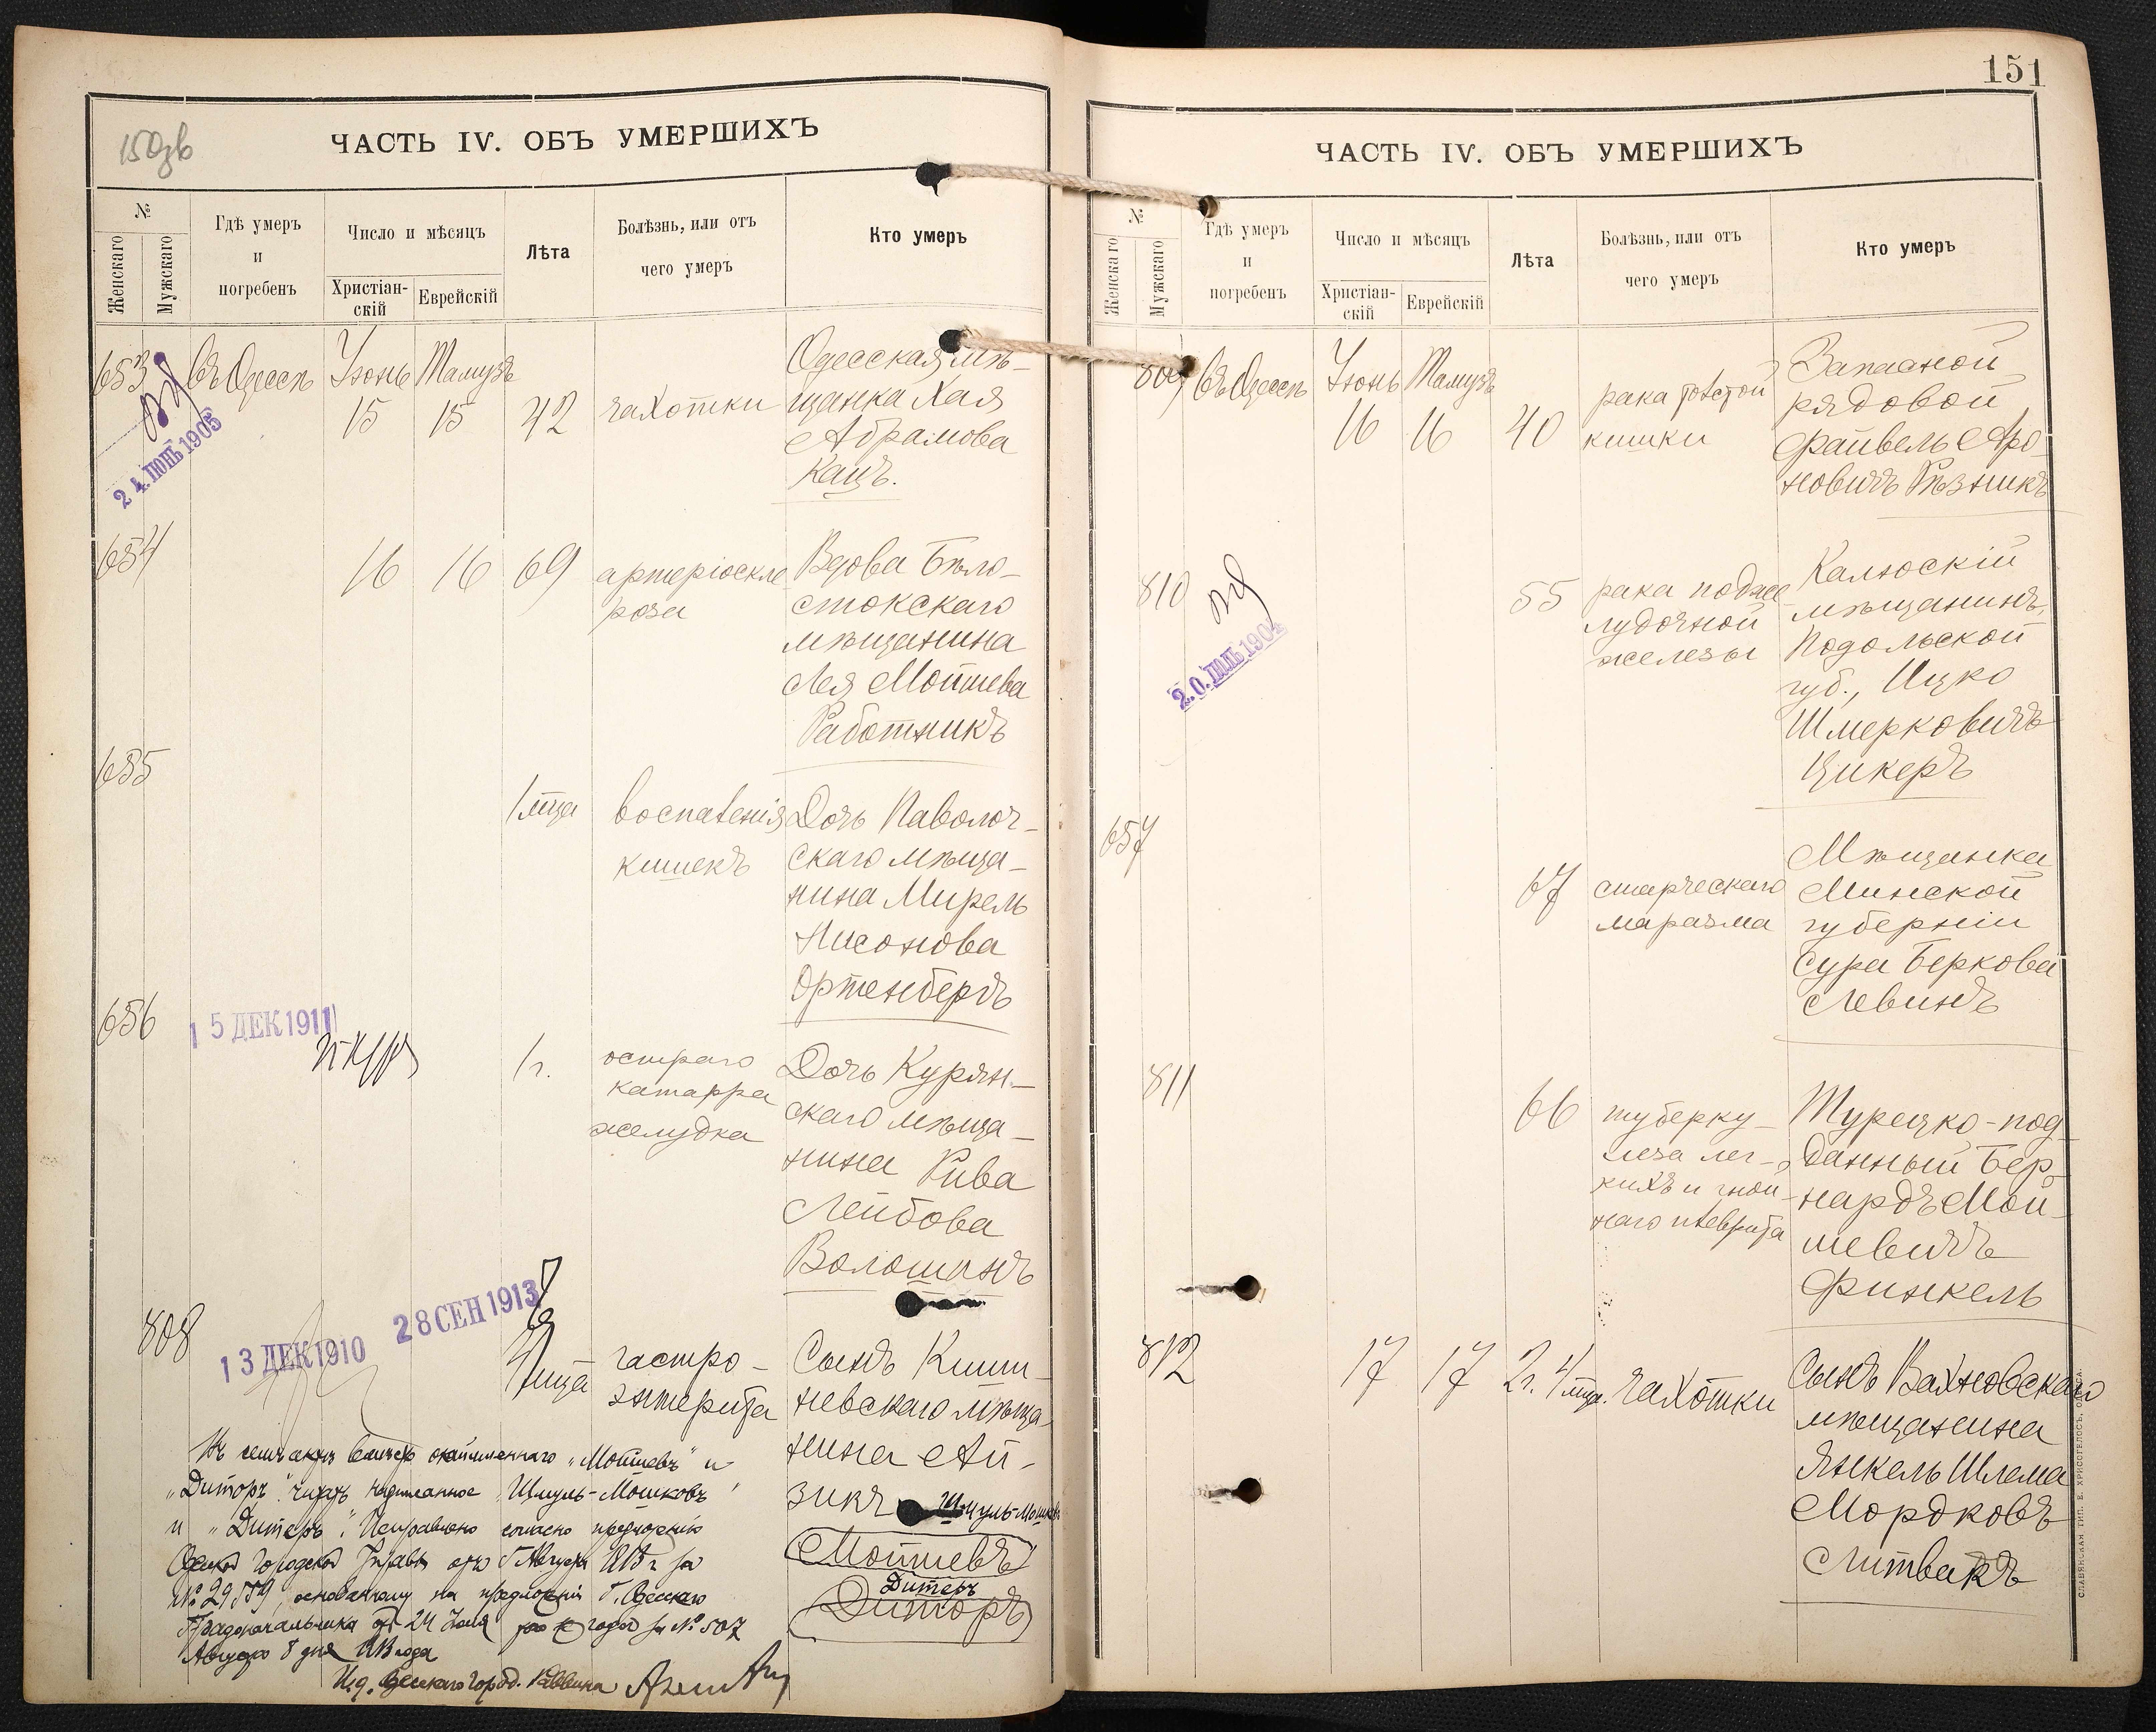 150
ЧАСТЬ IV. ОБЪ УМЕРШИХЪ
№
Женскаго
Мужскаго
Гдѣ умеръ
и
погребенъ
Число и мѣсяцъ
Христіан-
скій
Еврейскій
Лѣта
Болѣзнь, или отъ
чего умеръ
Кто умеръ
653
24. ІЮНЬ 1905
Въ Одессѣ
Іюнь
15
Тамузъ
15
42
чахотки
Одесская мѣ-
щанка Хая
Абрамова
Кацъ.
654
16
16
69
артеріоскле
роза
Вдова Бѣло-
стокскаго
мѣщанина
Лея Мойшева
Работникъ
655
1 мца
воспаленія
кишекъ
Дочь Паволоч-
скаго мѣща-
нина Мирель
Нисонова
Ортенбергъ
656
15 ДЕК 1911
1 г.
остраго
катарра
желудка
Дочь Курян-
скаго мѣща-
нина Рива
Лейбова
Волошинъ
808
13 ДЕК 1910
28 СЕН 1913
мца
гастро-
энтерита
Сынъ Киши-
невскаго мѣща-
нина Ай-
зикъ Шмуль-Мошков
Мойшевъ
Дитеръ
Диторъ
Въ семъ актѣ вмѣсто окаймленнаго „Мойшевъ“ и
„Диторъ“ читать надписанное „Шмуль-Мошковъ“
и „Дитеръ“. Исправлено согласно предложенію
Одесской Городской Управы отъ Августа 1913 г. за
№ 29 основанному на предложеніи Г. Одесскаго
Градоначальника отъ 24 Іюля года за № 507
Августа 8 дня 1913 года
И.д. Одесскаго Город. Раввина
151
ЧАСТЬ IV. ОБЪ УМЕРШИХЪ
№
Женскаго
Мужскаго
Гдѣ умеръ
и
погребенъ
Число и мѣсяцъ
Христіан-
скій
Еврейскій
Лѣта
Болѣзнь, или отъ
чего умеръ
Кто умеръ
809
Въ Одессѣ
Іюнь
16
Тамузъ
16
40
рака толстой
кишки
Запасной
рядовой
Файвель Аро-
новичъ Рѣзникъ
810
20. ІЮЛЬ 1904
55
рака поджe
лудочной
железы
Калюскій
мѣщанинъ,
Подольской
губ., Ицко
Шмерковичъ
Цикеръ
657
67
старческаго
маразма
Мѣщанка
Минской
губерніи
Сура Беркова
Левинъ
811
66
туберку-
леза лег-
кихъ и гной-
наго плеврита
Турецко-под-
данный Бер-
нардъ Мой-
шевичъ
Финкель
812
17
17
2 г. 4 мца.
чахотки
Сынъ Вахновскаго
мѣщанина
Янкель Шлема
Мордковъ
Литвакъ
СЛАВЯНСКАЯ ТИП. Е. ХРИСОГЕЛОСЪ, ОДЕССА.